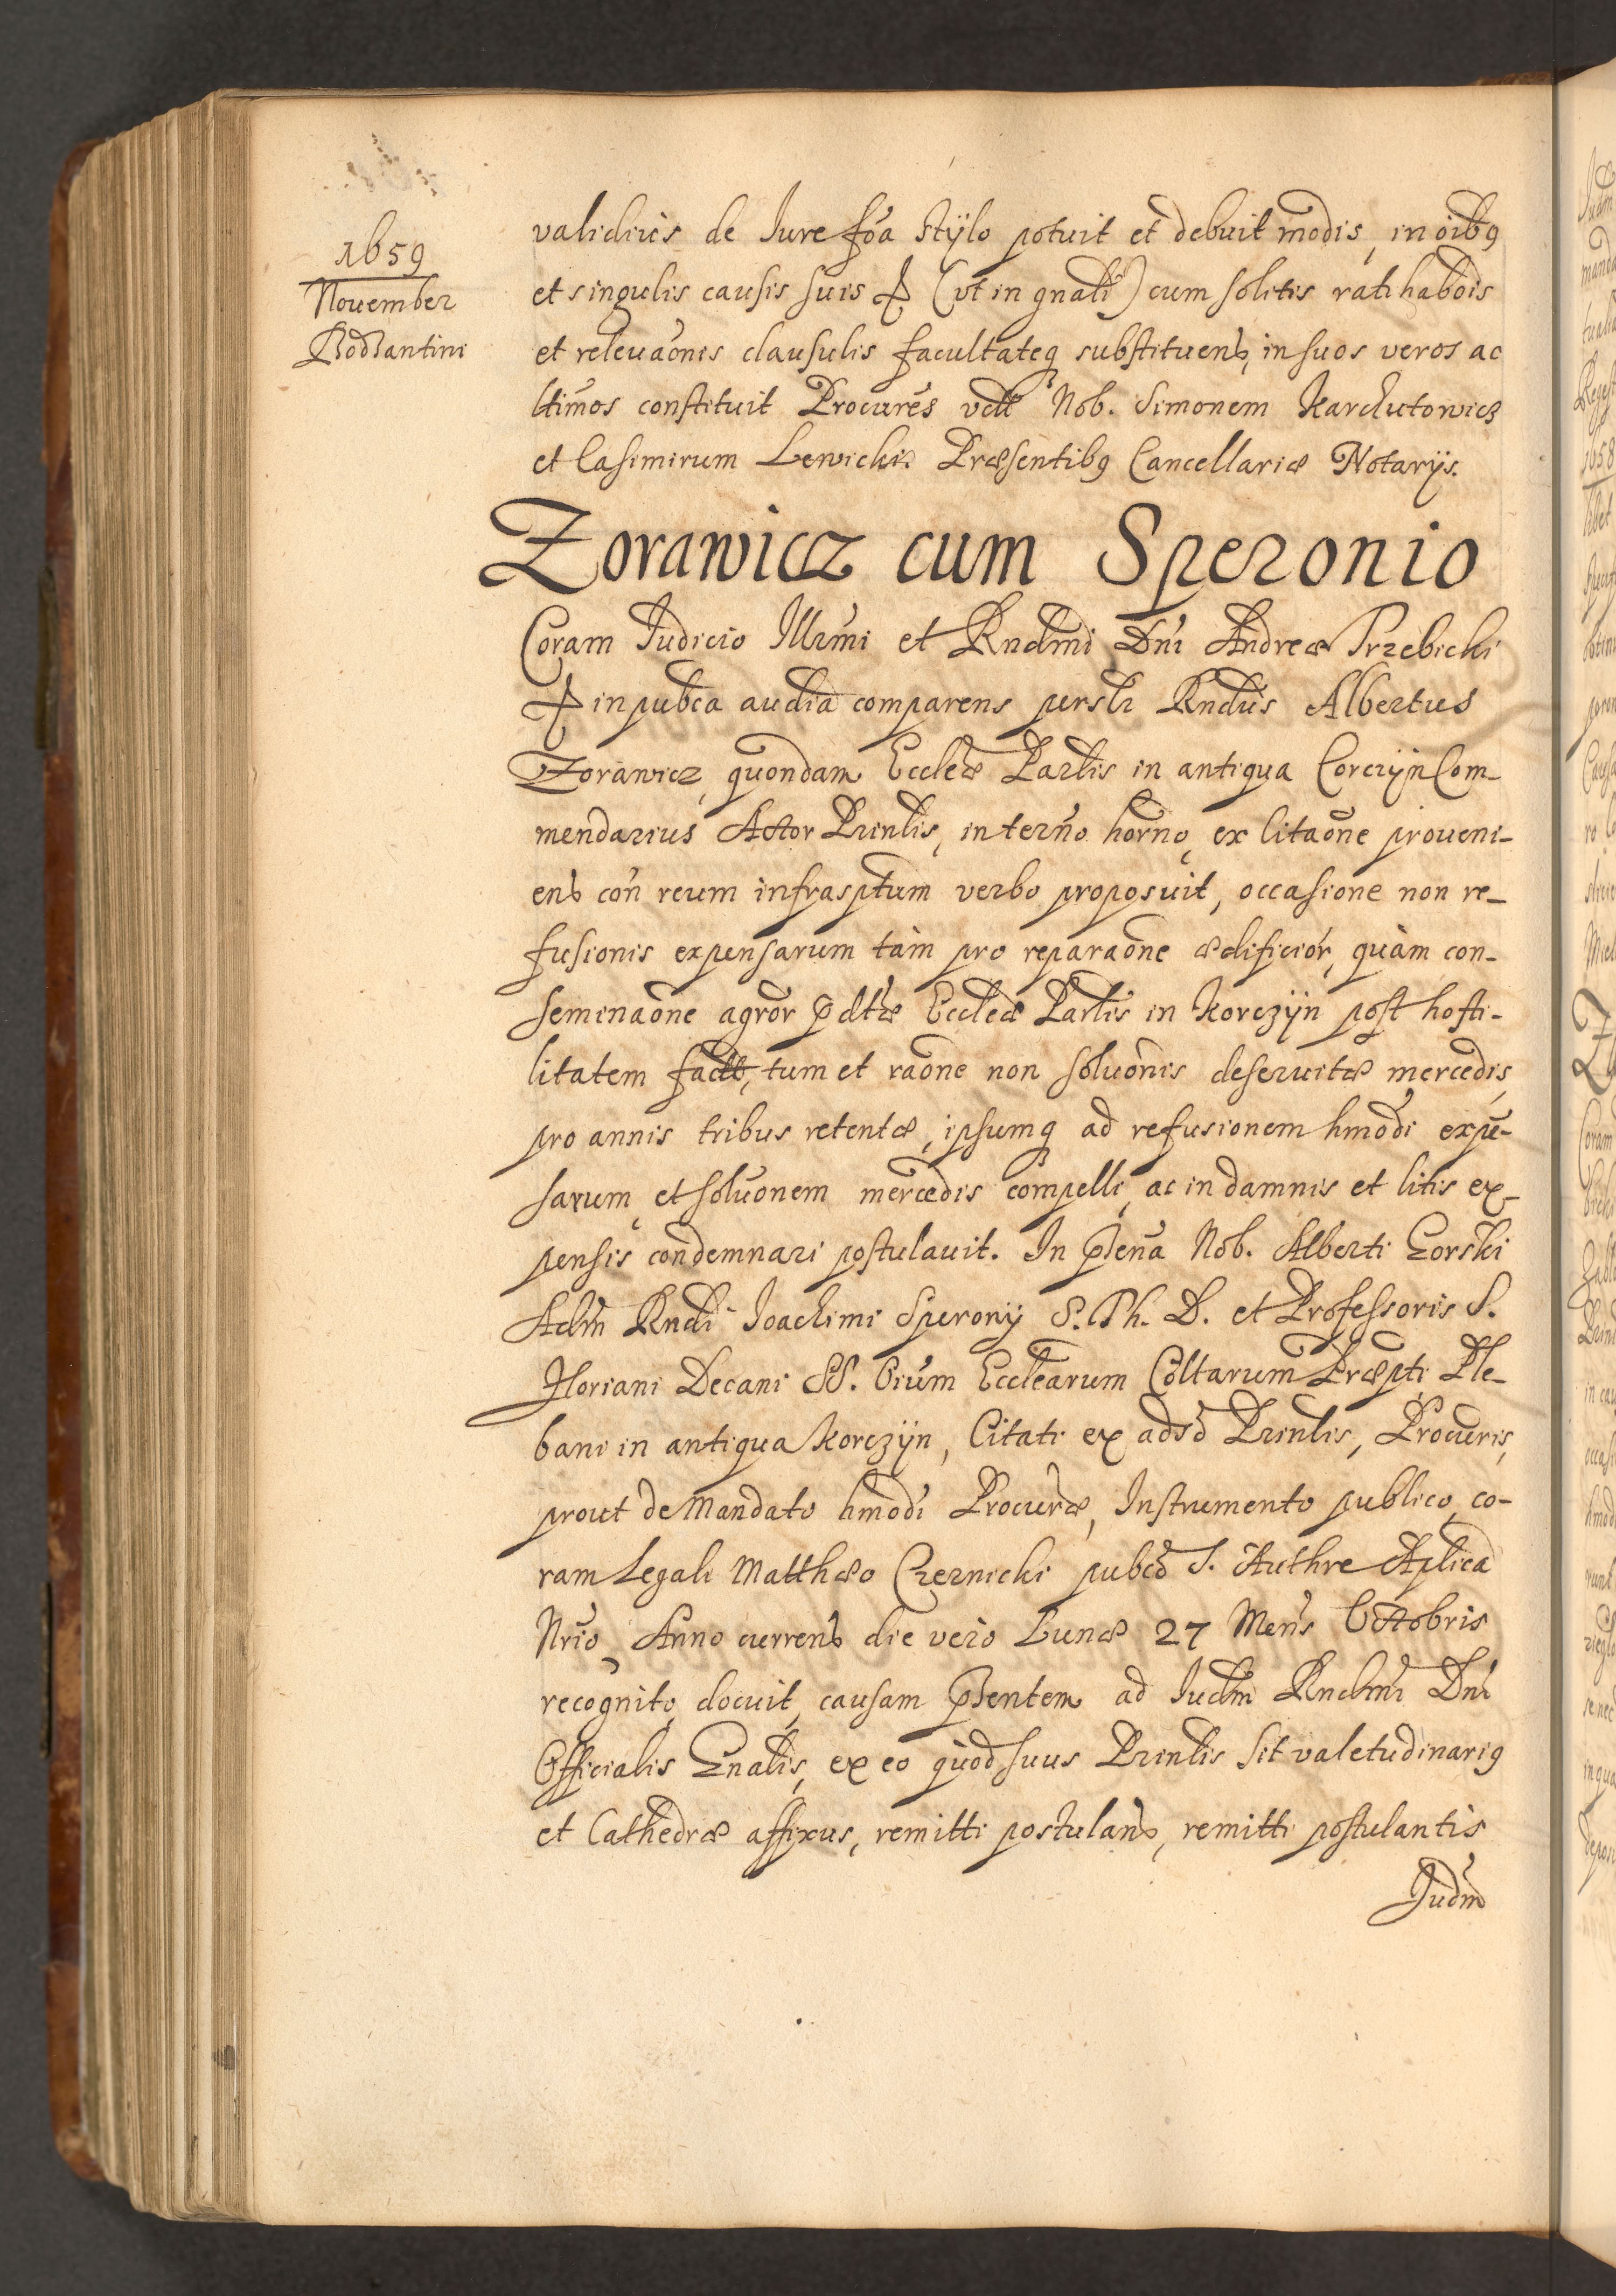 1659
November
Bodzantini
validius de Iure foa stÿlo potuit et debuit modis, in oibq
et singulis causis suis & (vt in gnali) cum solitis ratihabois
et releuaonis clausulis facultateq substituens, in suos veros ac
ltimos constituit Procures vdtt Nob. Simonem Karchutowicz
et Casimirum Lewicki Præsentibq Cancellariæ Notarijs.
Zorawicz cum Speronio
Coram Iudicio Illrmi et Rndmi Dni Andreæ Trzebicki
& in pubca audia comparens persltr Rndus Albertus
Zorawicz, quondam Eccleæ Parlis in antiqua Corczÿn Com-
mendarius Actor Prinlis, in terno horno, ex litaone proueni-
ens con reum infrasptum verbo proposuit, occasione non re-
fusionis expensarum tàm pro reparaone ædificior, quàm con-
seminaone agror pdtæ Eccleæ Parlis in Korczÿn post hosti-
litatem fact, tum et raone non soluonis deseruitæ mercedis,
pro annis tribus retentæ, ipsumq ad refusionem hmodi expe-
sarum, et soluonem mercedis compelli, ac in damnis et litis ex-
pensis condemnari postulauit. In psena Nob. Alberti Gorski
Adm Rndi Ioachimi Speronij S. Ph. D. et Professoris S.
Floriani Decani SS. Oium Ecclearum Coltarum Præpti Ple-
bani in antiqua Korczÿn, Citati ex adso Prinlis, Procuris,
prout de Mandato hmodi Procuræ, Instrumento publico, co-
ram Legali Matthæo Czernicki pubco S. Authre Aplica
Nrio, Anno currens die vero Lunæ 27 Mens Octobris
recognito, docuit, causam psentem ad Iudm Rndmi Dni
Officialis Gnalis, ex eo quod suus Prinlis sit valetudinariq
et Cathedræ affixus, remitti postulans, remitti postulantis
Judm